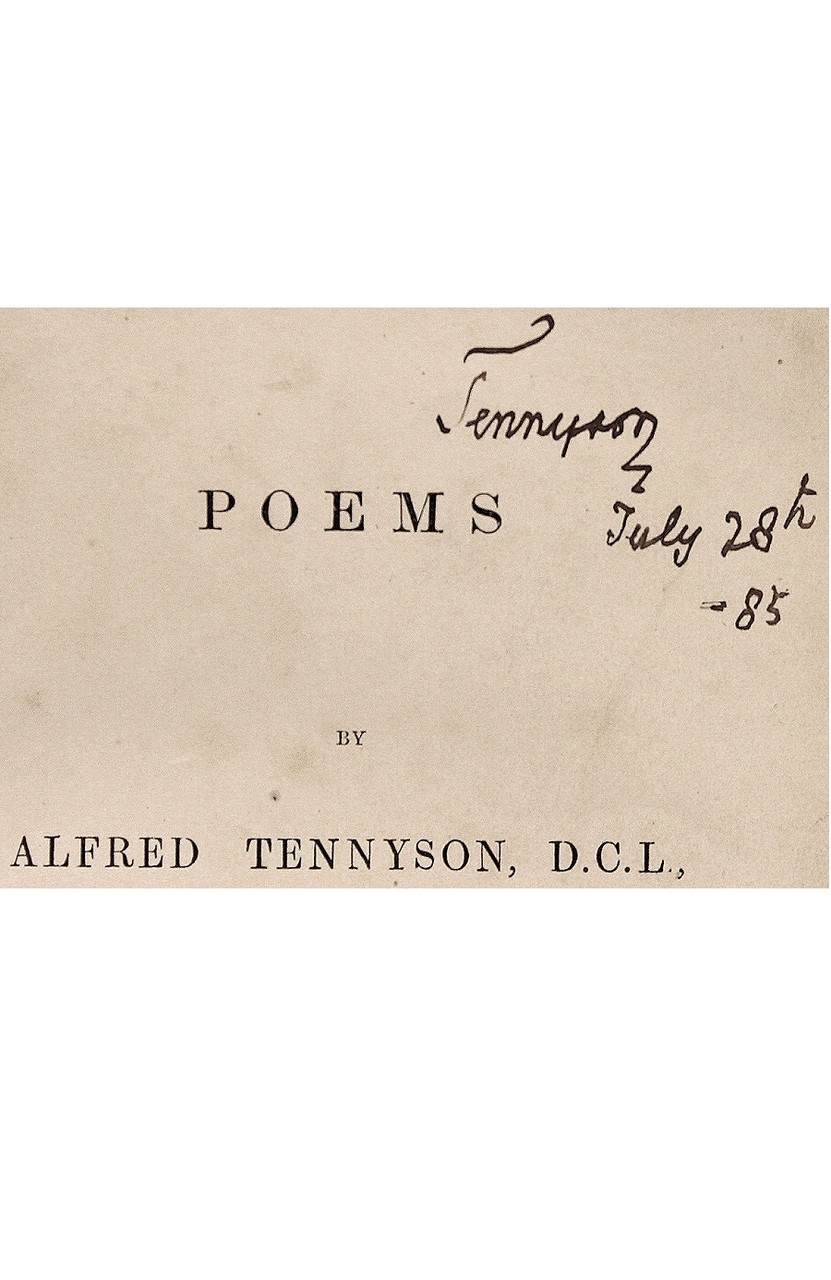 Tennyson
POEMS
July 28th
- 85
BY
ALFRED TENNYSON, D.C.L.,